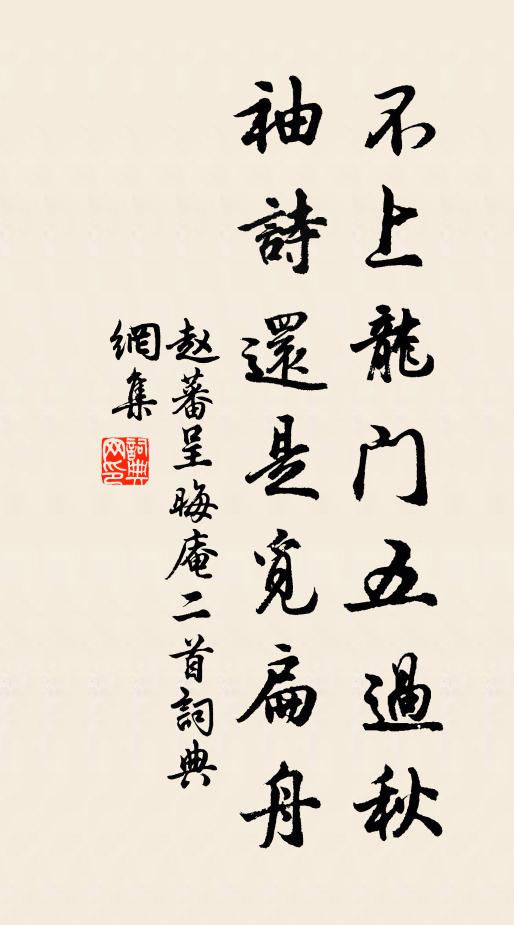 不上龍门五過秋
袖詩還是覓扁舟
赵蕃呈晦庵二首詞典
網集
詞典
网印